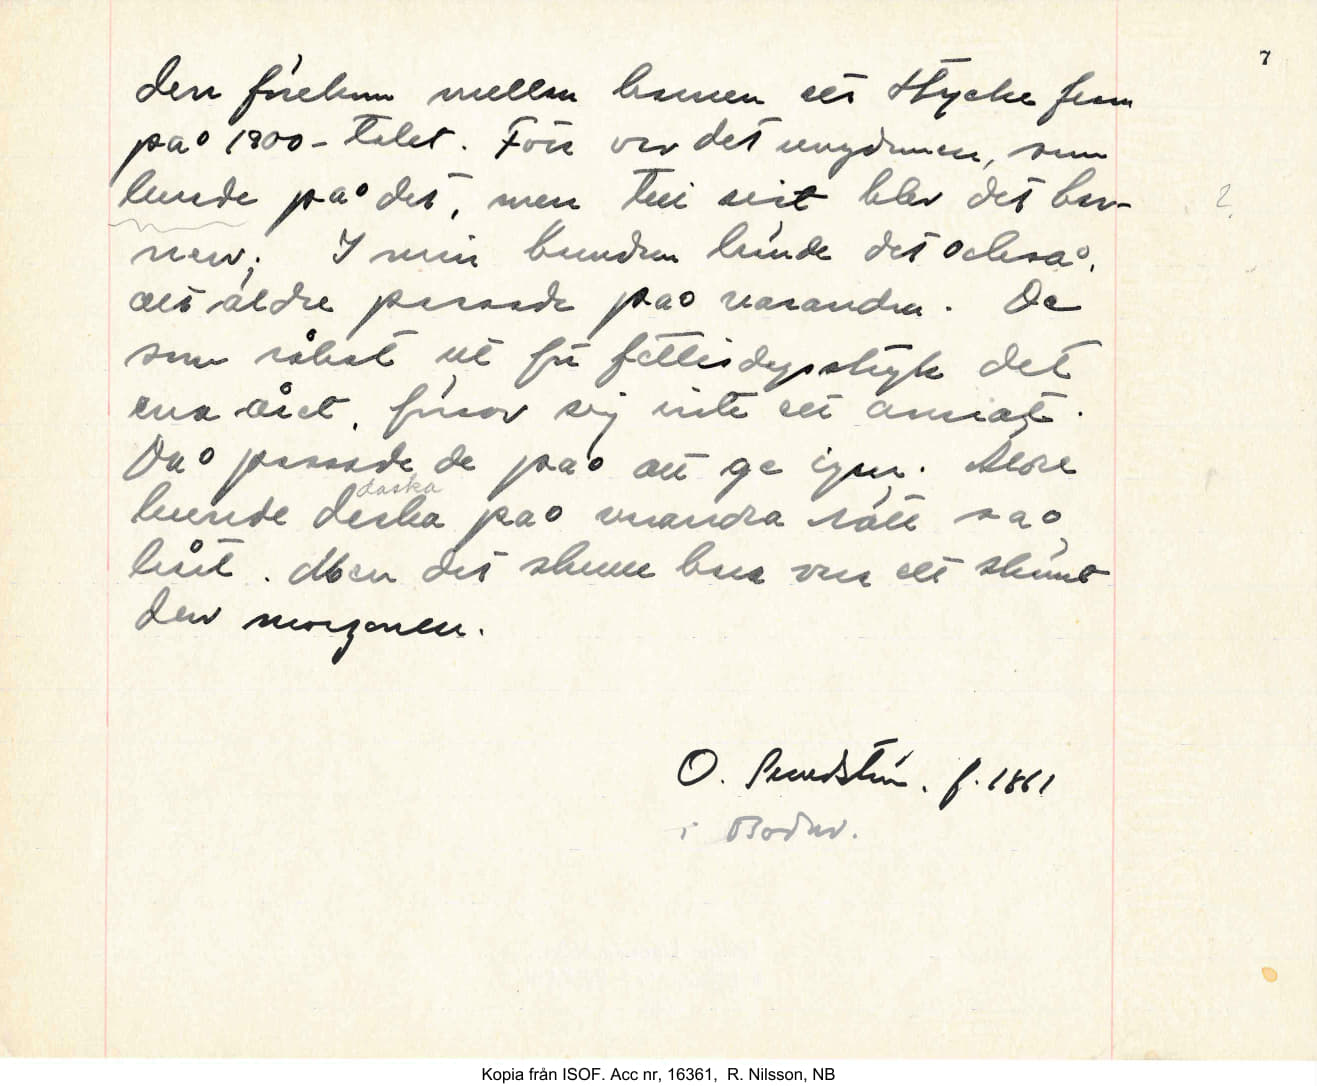 7
den förekom mellan barnen ett stycke fram
på 1800-talet. Förr var det ungdomen, som
kunde på det, men till sist blev det bar-
nen. I min barndom hände det också,
att äldre passade på varandra. De
som råkat ut för fettisdagsstryk det
ena året, försov sig inte ett annat.
Då passade de på att ge igen. Större
daska
kunde deska på varandra rätt så
hårt. Men det skulle bara vara ett skämt
den morgonen.
O. Sundström. f. 1861
i Boda.
Kopia från ISOF. Acc nr, 16361, R. Nilsson, NB